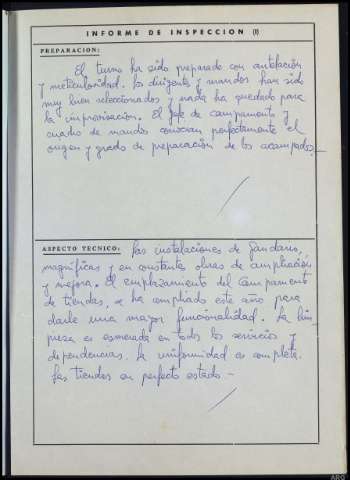 INFORME DE INSPECCION (I)
PREPARACION:
El turno ha sido preparado con antelación
y meticulosidad. Los dirigentes y mandos han sido
muy bien seleccionados y nada ha quedado para
la improvisación. El Jefe de campamento y
cuadro de mandos conocían perfectamente el
origen y grado de preparación de los acampados.—
ASPECTO TECNICO: Las instalaciones de Gandario,
magníficas y en constantes obras de ampliación
y mejora. El emplazamiento del Campamento
de tiendas, se ha ampliado este año para
darle una mayor funcionalidad. La lim
pieza es esmerada en todos los servicios y
dependencias. La uniformidad es completa.
Las tiendas en perfecto estado.—
ARQ